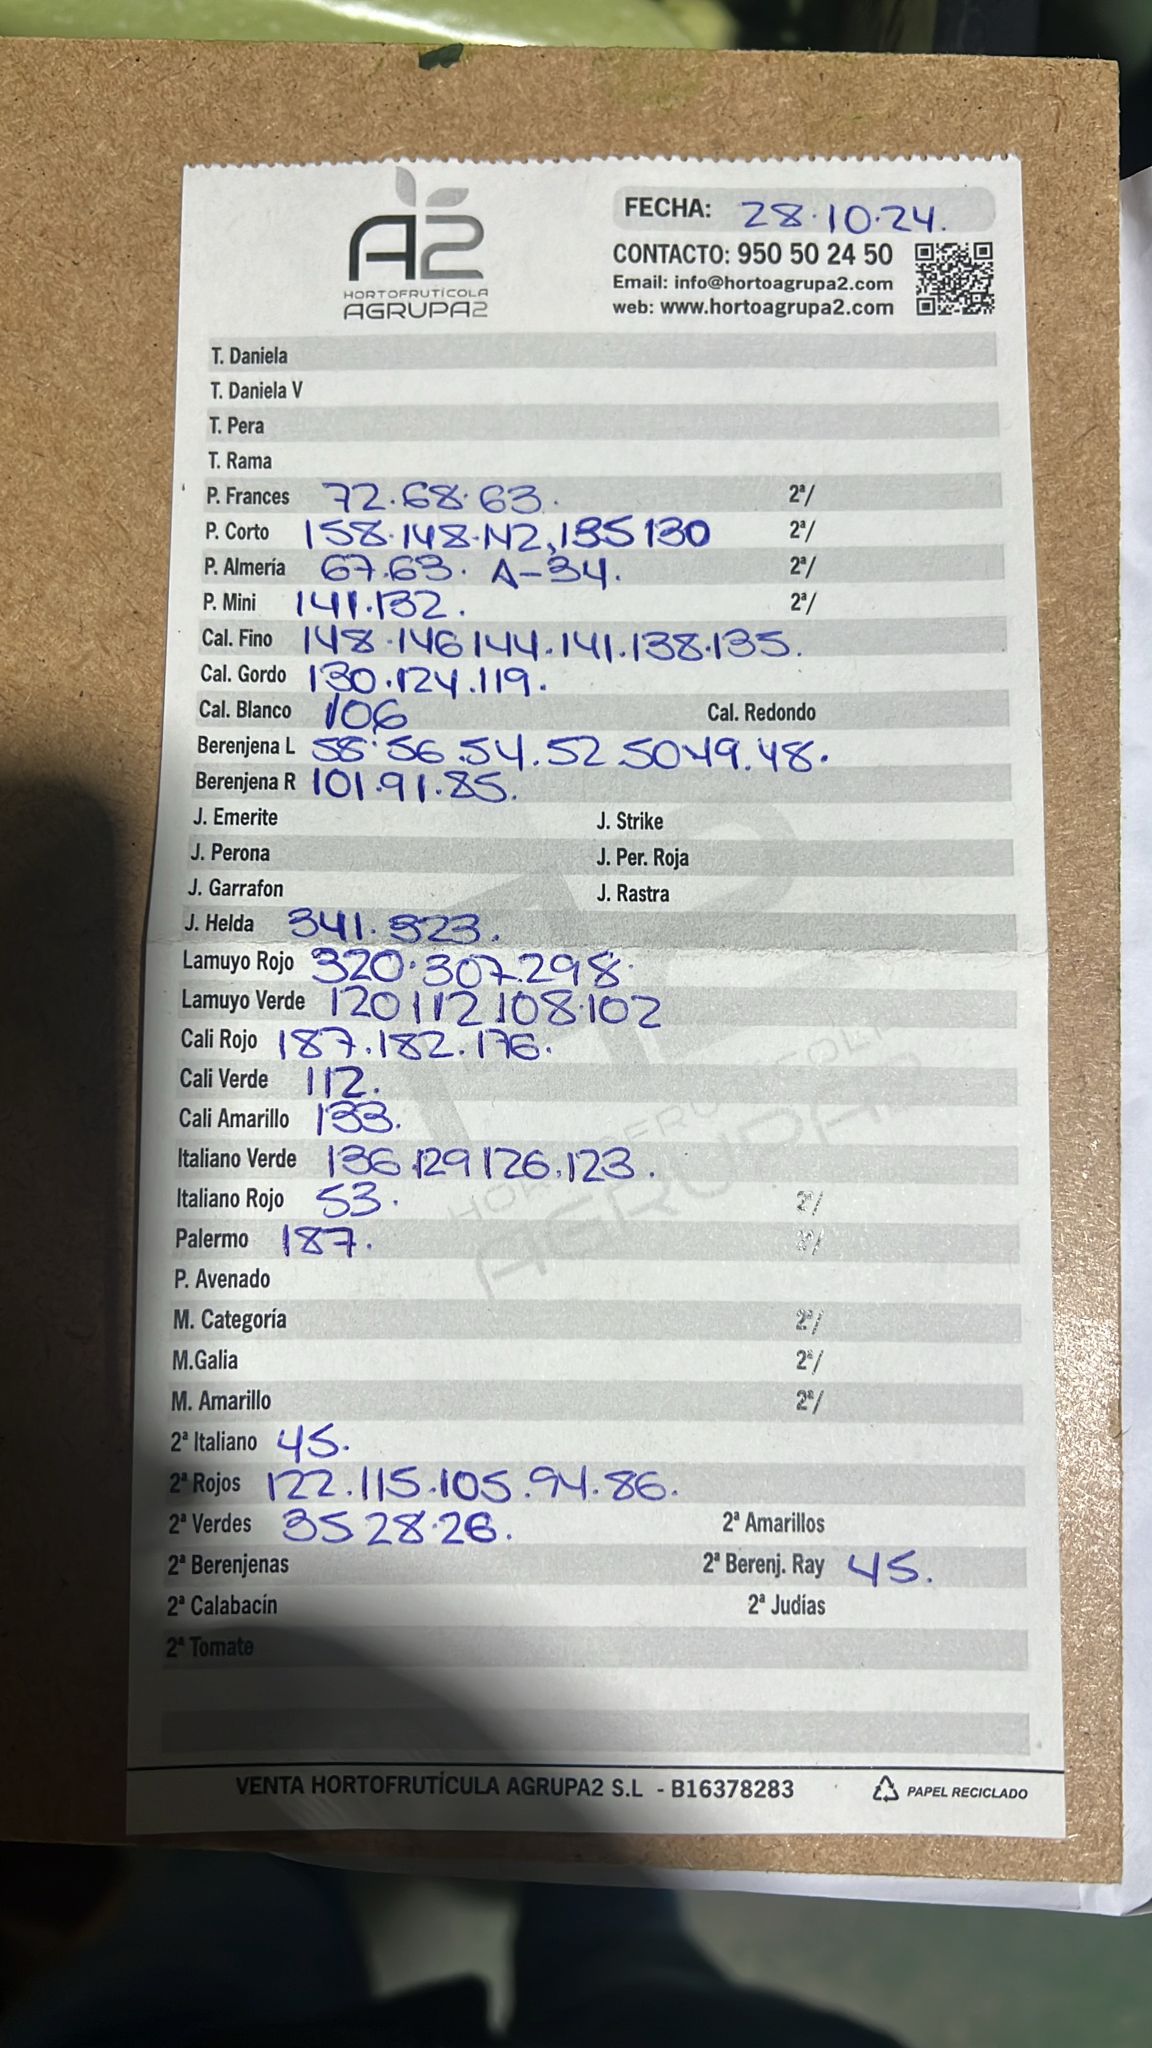 A2
HORTOFRUTÍCOLA
AGRUPA2
FECHA: 28.10.24.
CONTACTO: 950 50 24 50
Email: info@hortoagrupa2.com
web: www.hortoagrupa2.com
T. Daniela
T. Daniela V
T. Pera
T. Rama
P. Frances 72.68.63. 2ª/
P. Corto 158.148.142,135 130 2ª/
P. Almería 67.63. A-34. 2ª/
P. Mini 141.132. 2ª/
Cal. Fino 148.146 144.141.138.135.
Cal. Gordo 130.124.119.
Cal. Blanco 106 Cal. Redondo
Berenjena L 58.56.54.52.50.49.48.
Berenjena R 101.91.85.
J. Emerite J. Strike
J. Perona J. Per. Roja
J. Garrafon J. Rastra
J. Helda 341.323.
Lamuyo Rojo 320.307.298.
Lamuyo Verde 120 112 108.102
Cali Rojo 187.182.176.
Cali Verde 112.
Cali Amarillo 133.
Italiano Verde 136.129 126.123.
Italiano Rojo 53. 2ª/
Palermo 187. 2ª/
P. Avenado
M. Categoría 2ª/
M.Galia 2ª/
M. Amarillo 2ª/
2ª Italiano 45.
2ª Rojos 122.115.105.94.86.
2ª Verdes 35 28.26. 2ª Amarillos
2ª Berenjenas 2ª Berenj. Ray 45.
2ª Calabacín 2ª Judías
2ª Tomate
VENTA HORTOFRUTÍCULA AGRUPA2 S.L - B16378283 PAPEL RECICLADO